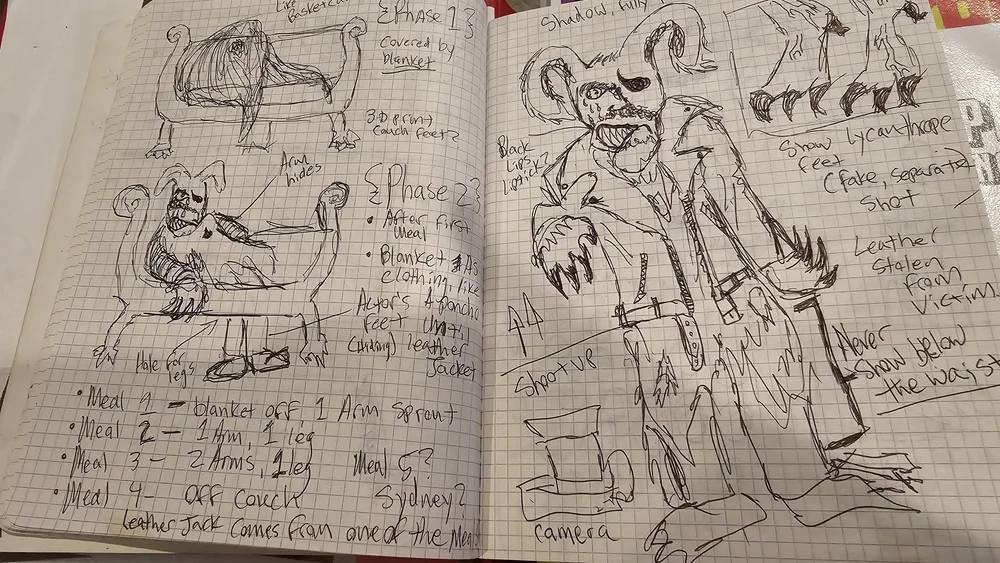 Like
Basketca
{Phase 1}
Covered by
blanket
3-D print
Couch feet?
Arm
hides
{Phase 2}
• After first
Meal
• Blanket As
clothing, like
A poncho
Until
leather
Jacket
Actor's
feet
(Hiding)
Hole for
legs
• Meal 1 - blanket off, 1 Arm sprout
• Meal 2 - 1 Arm, 1 leg
• Meal 3 - 2 Arms, 1 leg
• Meal 4 - off couch
Meal 5?
Sydney?
Leather Jack comes from one of the Mea
Shadow, Fully
Black
Lips
Lipstick?
Lycanthrope
Show
feet
(fake, separate)
shot
Leather
Stolen
from
Victim
Never
Show below
the waist
A4
Shot vs
camera